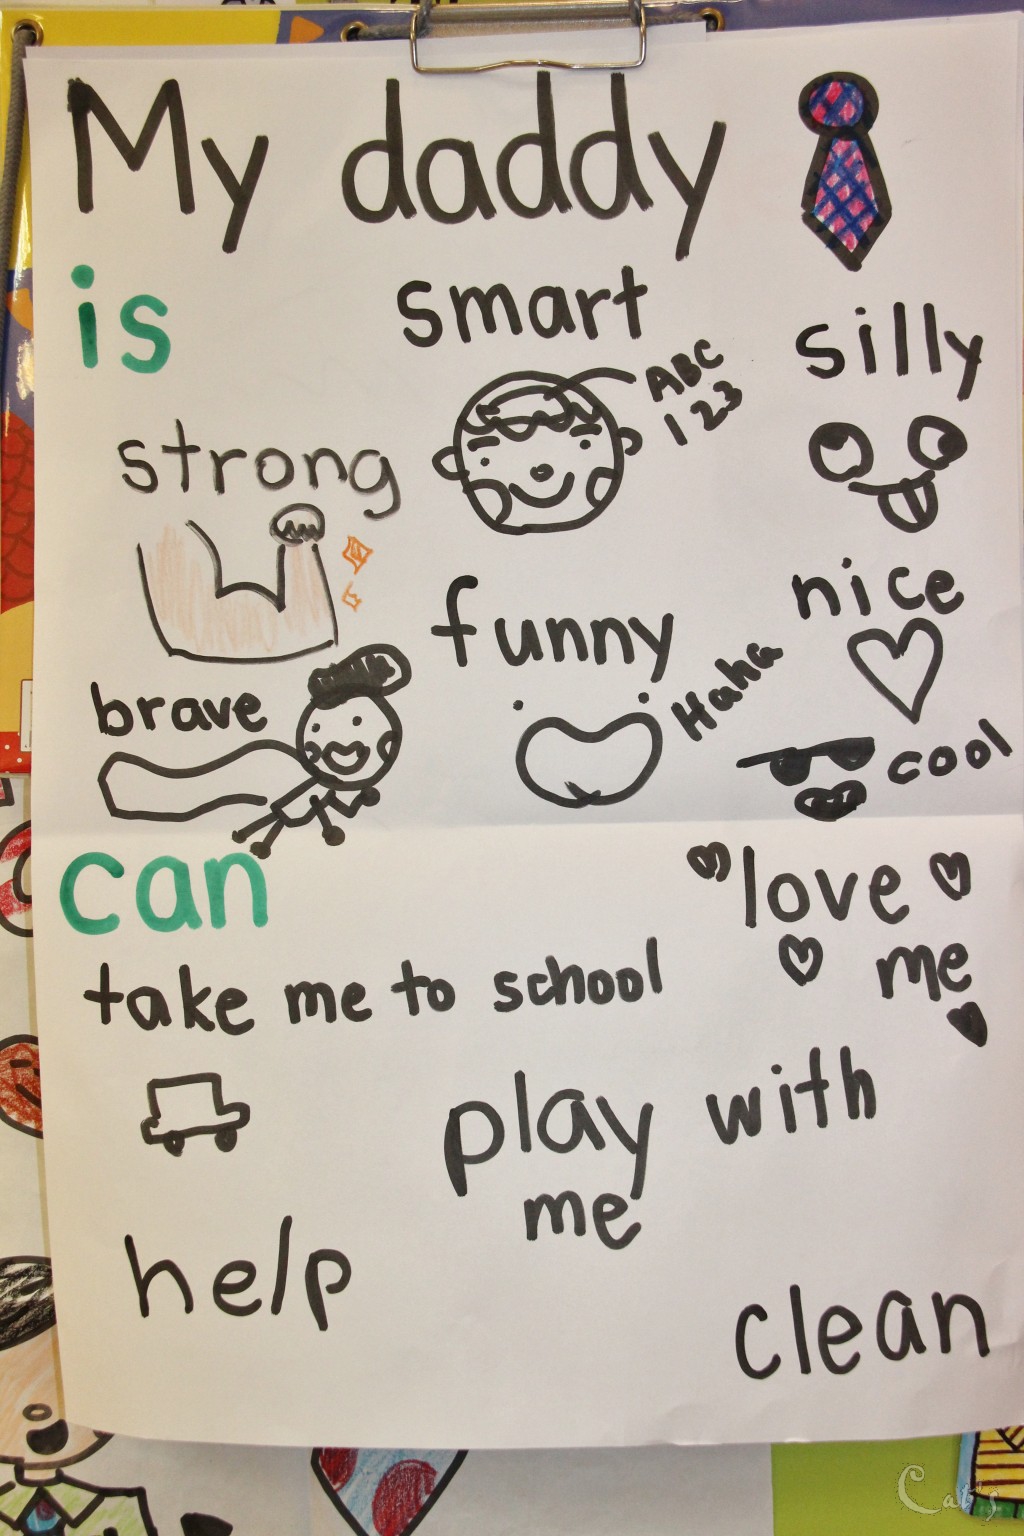 My daddy
is
smart
silly
strong
ABC
123
funny
nice
brave
Haha
cool
can
love
me
take me to school
play with
me
help
clean
Cat's